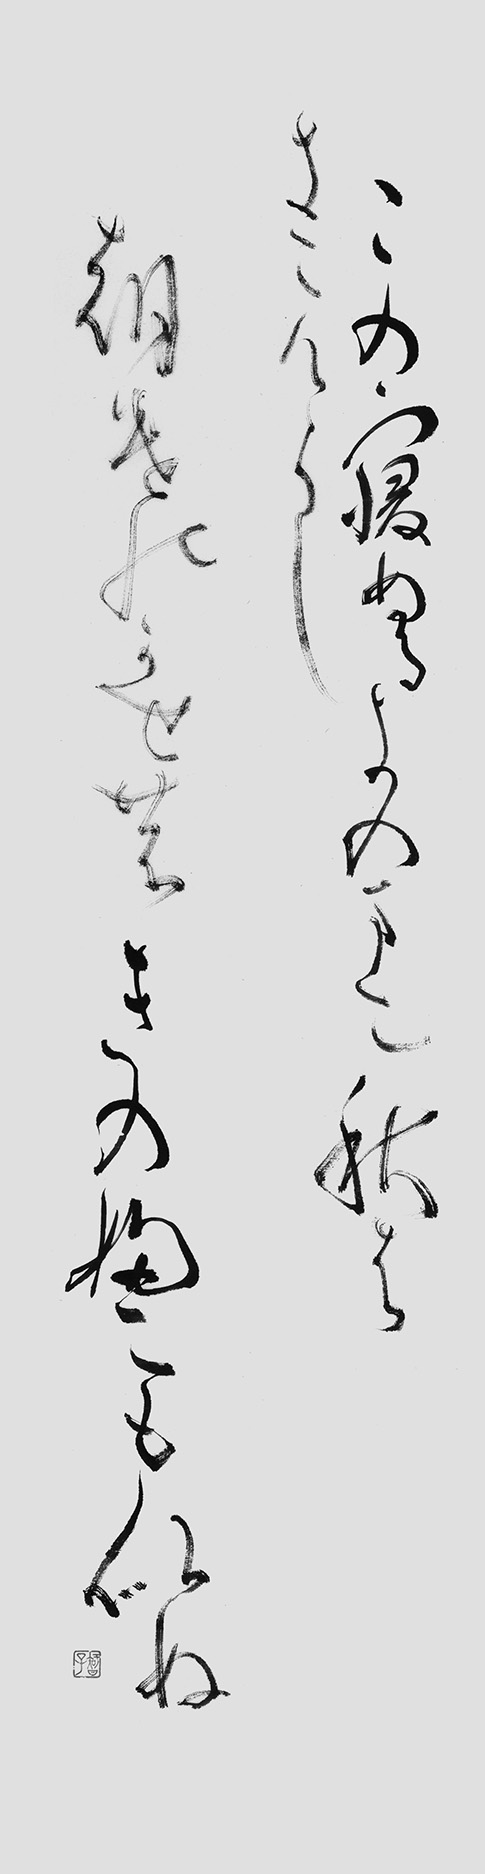 この寝ぬるよのまに秋は
きにけらし
朝けのかせのきのふにも似ぬ